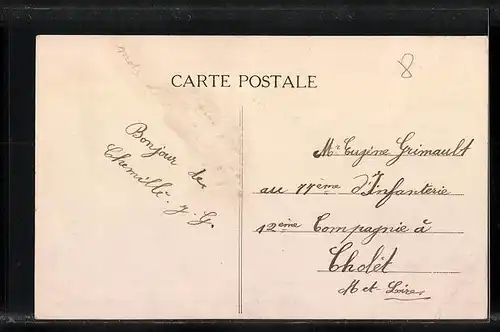 CARTE POSTALE
8
Bonjour de
Chemillé. J. G.
Mr Eugène Grimault
au 77ème d'Infanterie
12ème Compagnie à
Cholet
M et Loire